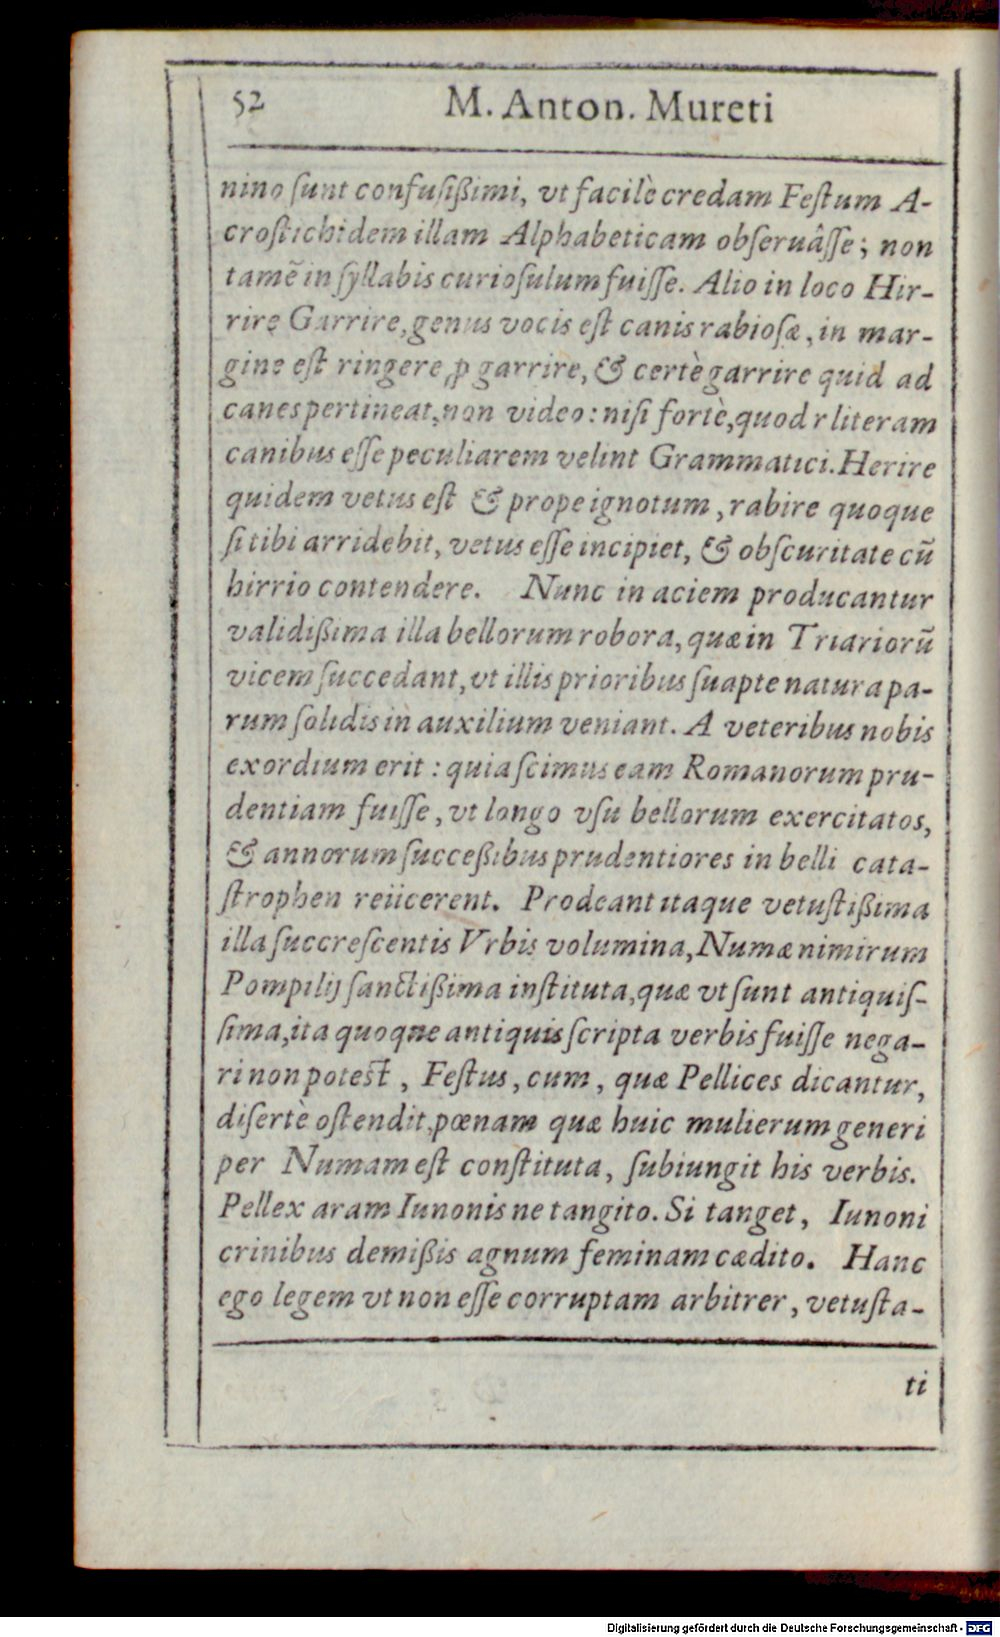 52 M. Anton. Mureti
nino ſunt confuſißimi, vt facilè credam Feſtum A-
croſtichidem illam Alphabeticam obſeruâſſe; non
tamẽ in ſyllabis curioſulum fuiſſe. Alio in loco Hir-
rire Garrire, genus vocis eſt canis rabioſæ, in mar-
gine eſt ringere, ꝓ garrire, & certè garrire quid ad
canes pertineat, non video: niſi fortè, quod r literam
canibus eſſe peculiarem velint Grammatici. Herire
quidem vetus eſt & prope ignotum, rabire quoque
ſi tibi arridebit, vetus eſſe incipiet, & obſcuritate cũ
hirrio contendere. Nunc in aciem producantur
validißima illa bellorum robora, quæ in Triariorũ
vicem ſuccedant, vt illis prioribus ſuapte natura pa-
rum ſolidis in auxilium veniant. A veteribus nobis
exordium erit: quia ſcimus eam Romanorum pru-
dentiam fuiſſe, vt longo vſu bellorum exercitatos,
& annorum ſucceßibus prudentiores in belli cata-
ſtrophen reiicerent. Prodeant itaque vetuſtißima
illa ſuccreſcentis Vrbis volumina, Numæ nimirum
Pompilij ſanctißima inſtituta, quæ vt ſunt antiquiſ-
ſima, ita quoque antiquis ſcripta verbis fuiſſe nega-
ri non potest, Feſtus, cum, quæ Pellices dicantur,
diſertè oſtendit, pœnam quæ huic mulierum generi
per Numam eſt conſtituta, ſubiungit his verbis.
Pellex aram Iunonis ne tangito. Si tanget, Iunoni
crinibus demißis agnum feminam cædito. Hanc
ego legem vt non eſſe corruptam arbitrer, vetuſta-
ti
Digitalisierung gefördert durch die Deutsche Forschungsgemeinschaft - DFG